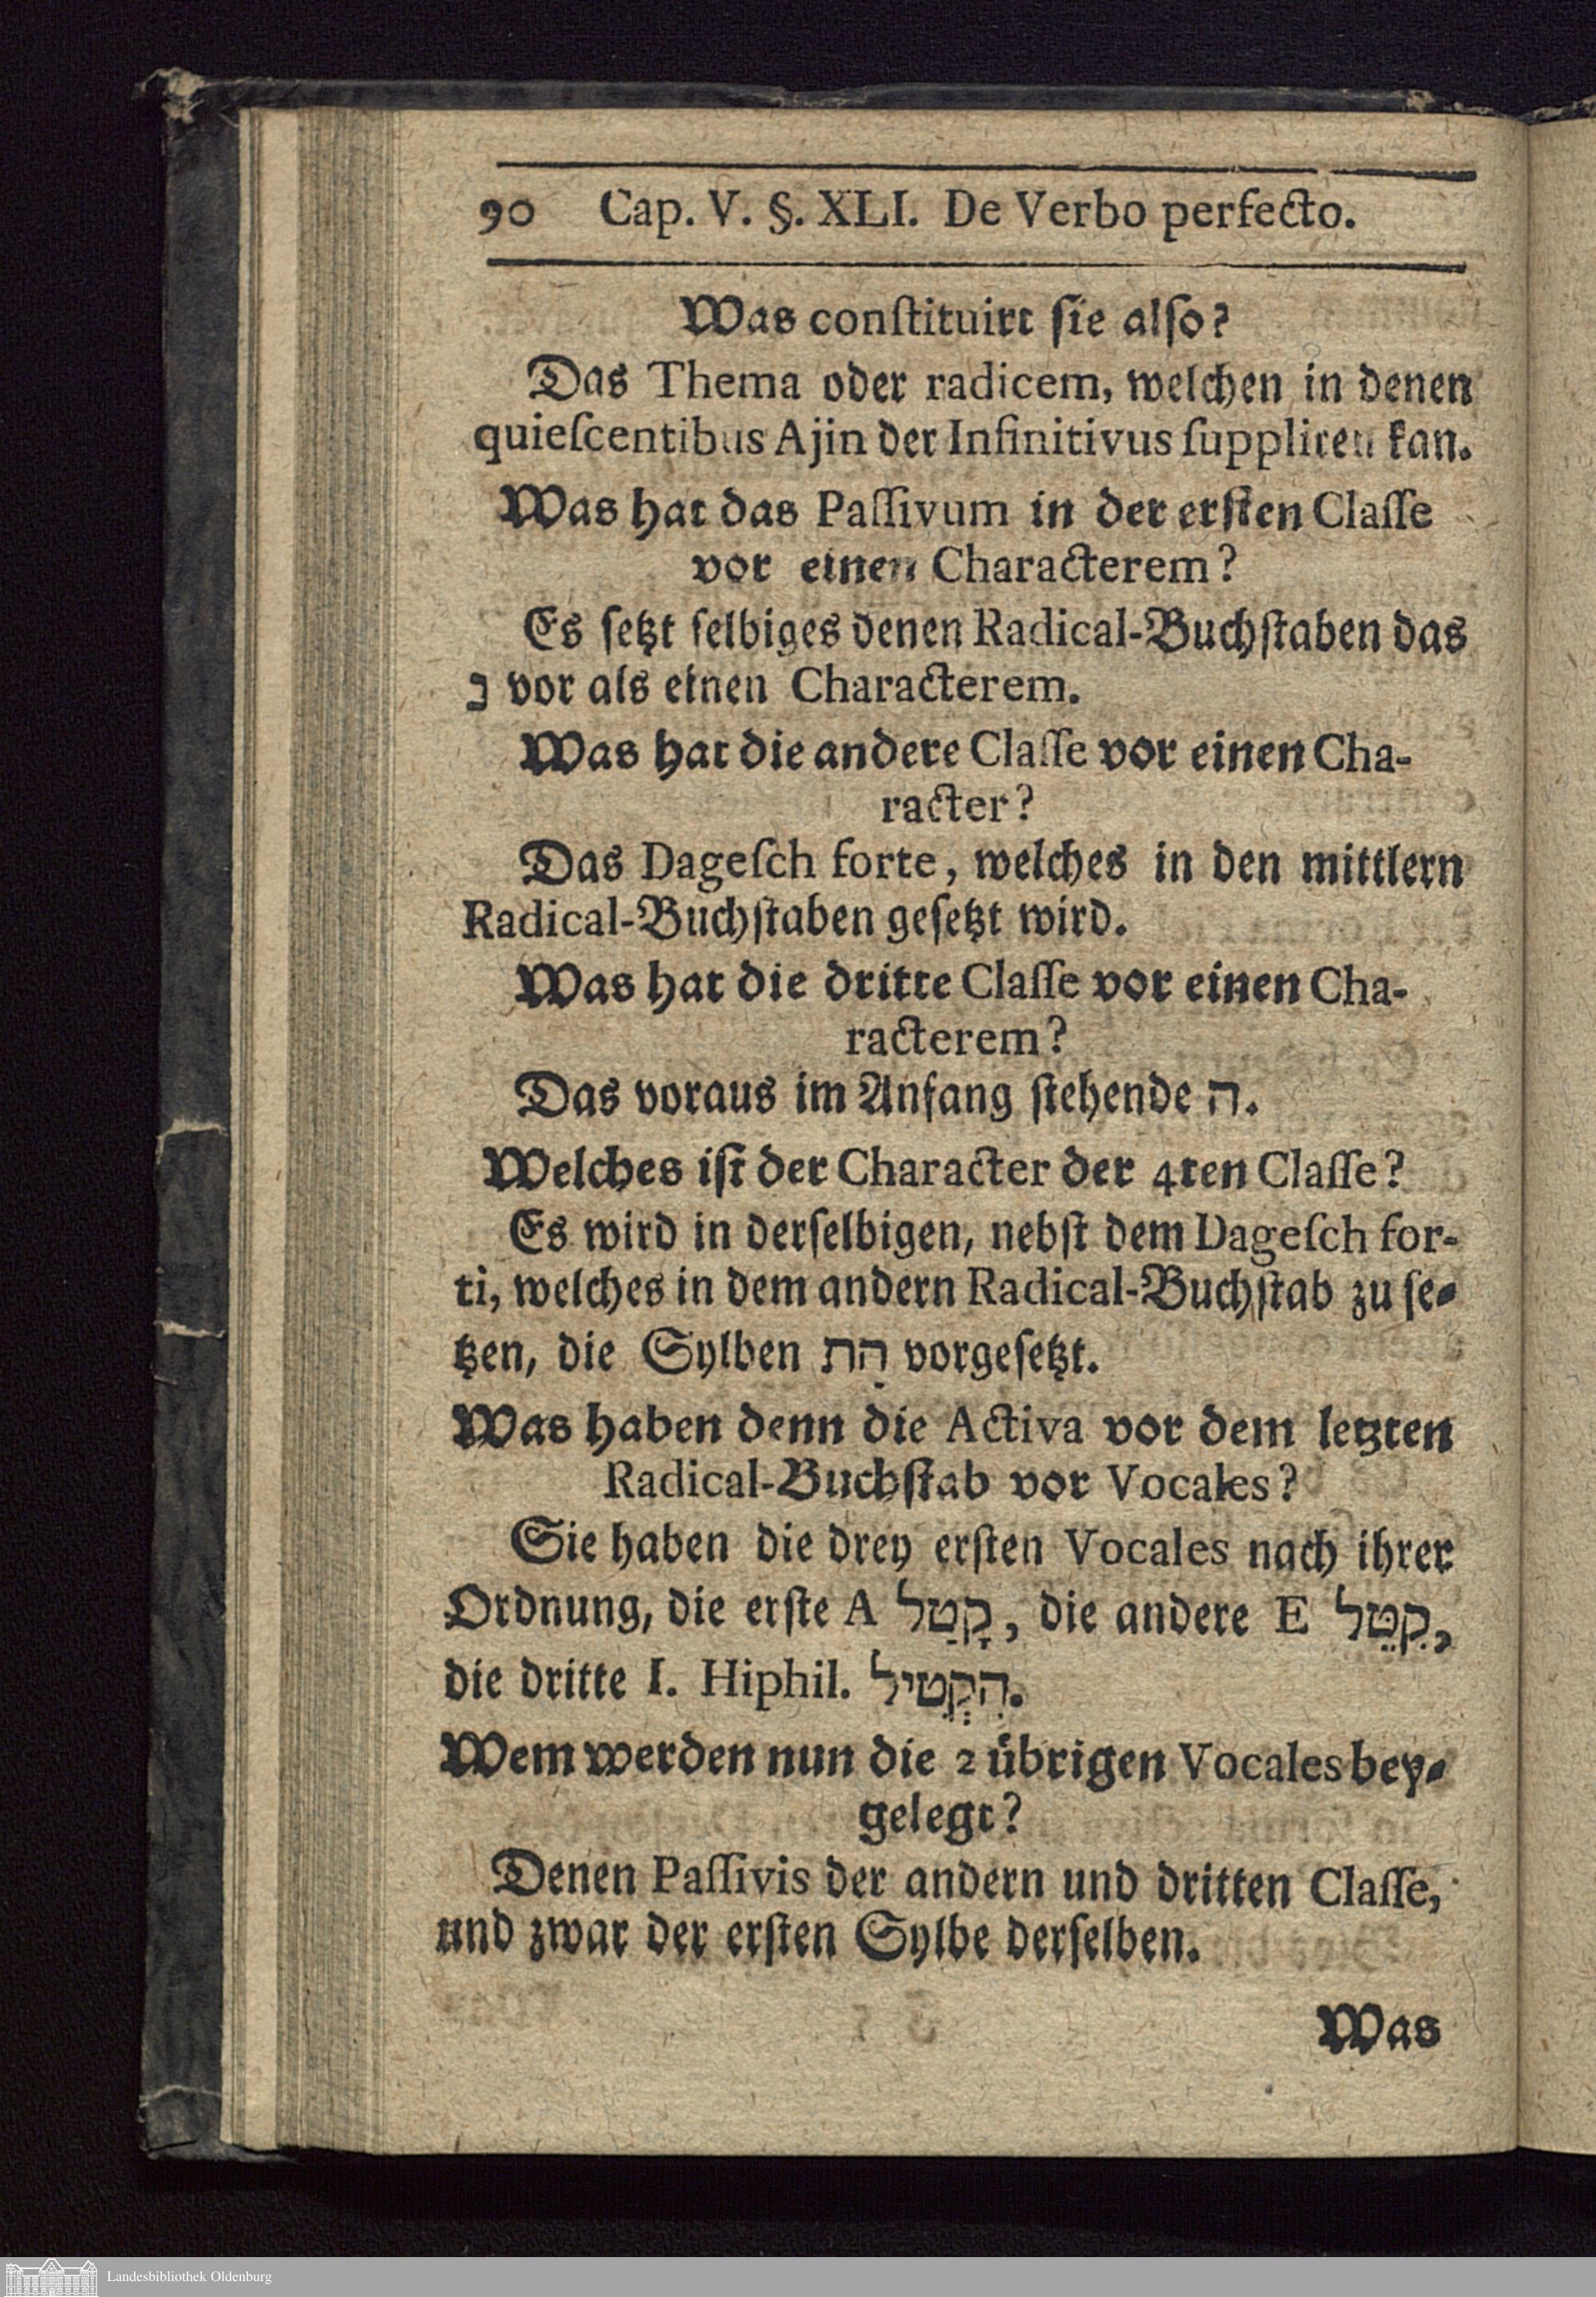 90 Cap. V. §. XLI. De Verbo perfecto.
Was conſtituirt ſie alſo?
Das Thema oder radicem, welchen in denen
quieſcentibus Ajin der Infinitivus ſuppliren kan.
Was hat das Paſſivum in der erſten Claſſe
vor einen Characterem?
Es ſetzt ſelbiges denen Radical-Buchſtaben das
נ vor als einen Characterem.
Was hat die andere Claſſe vor einen Cha-
racter?
Das Dageſch forte, welches in den mittlern
Radical-Buchſtaben geſetzt wird.
Was hat die dritte Claſſe vor einen Cha-
racterem?
Das voraus im Anfang ſtehende ה.
Welches iſt der Character der 4ten Claſſe?
Es wird in derſelbigen, nebſt dem Dageſch for-
ti, welches in dem andern Radical-Buchſtab zu ſe-
tzen, die Sylben הִת vorgeſetzt.
Was haben denn die Activa vor dem letzten
Radical-Buchſtab vor Vocales?
Sie haben die drey erſten Vocales nach ihrer
Ordnung, die erſte A קָטַל, die andere E קִטֵּל,
die dritte I. Hiphil. הִקְטִיל.
Wem werden nun die 2 übrigen Vocales bey-
gelegt?
Denen Paſſivis der andern und dritten Claſſe,
und zwar der erſten Sylbe derſelben.
Was
Landesbibliothek Oldenburg